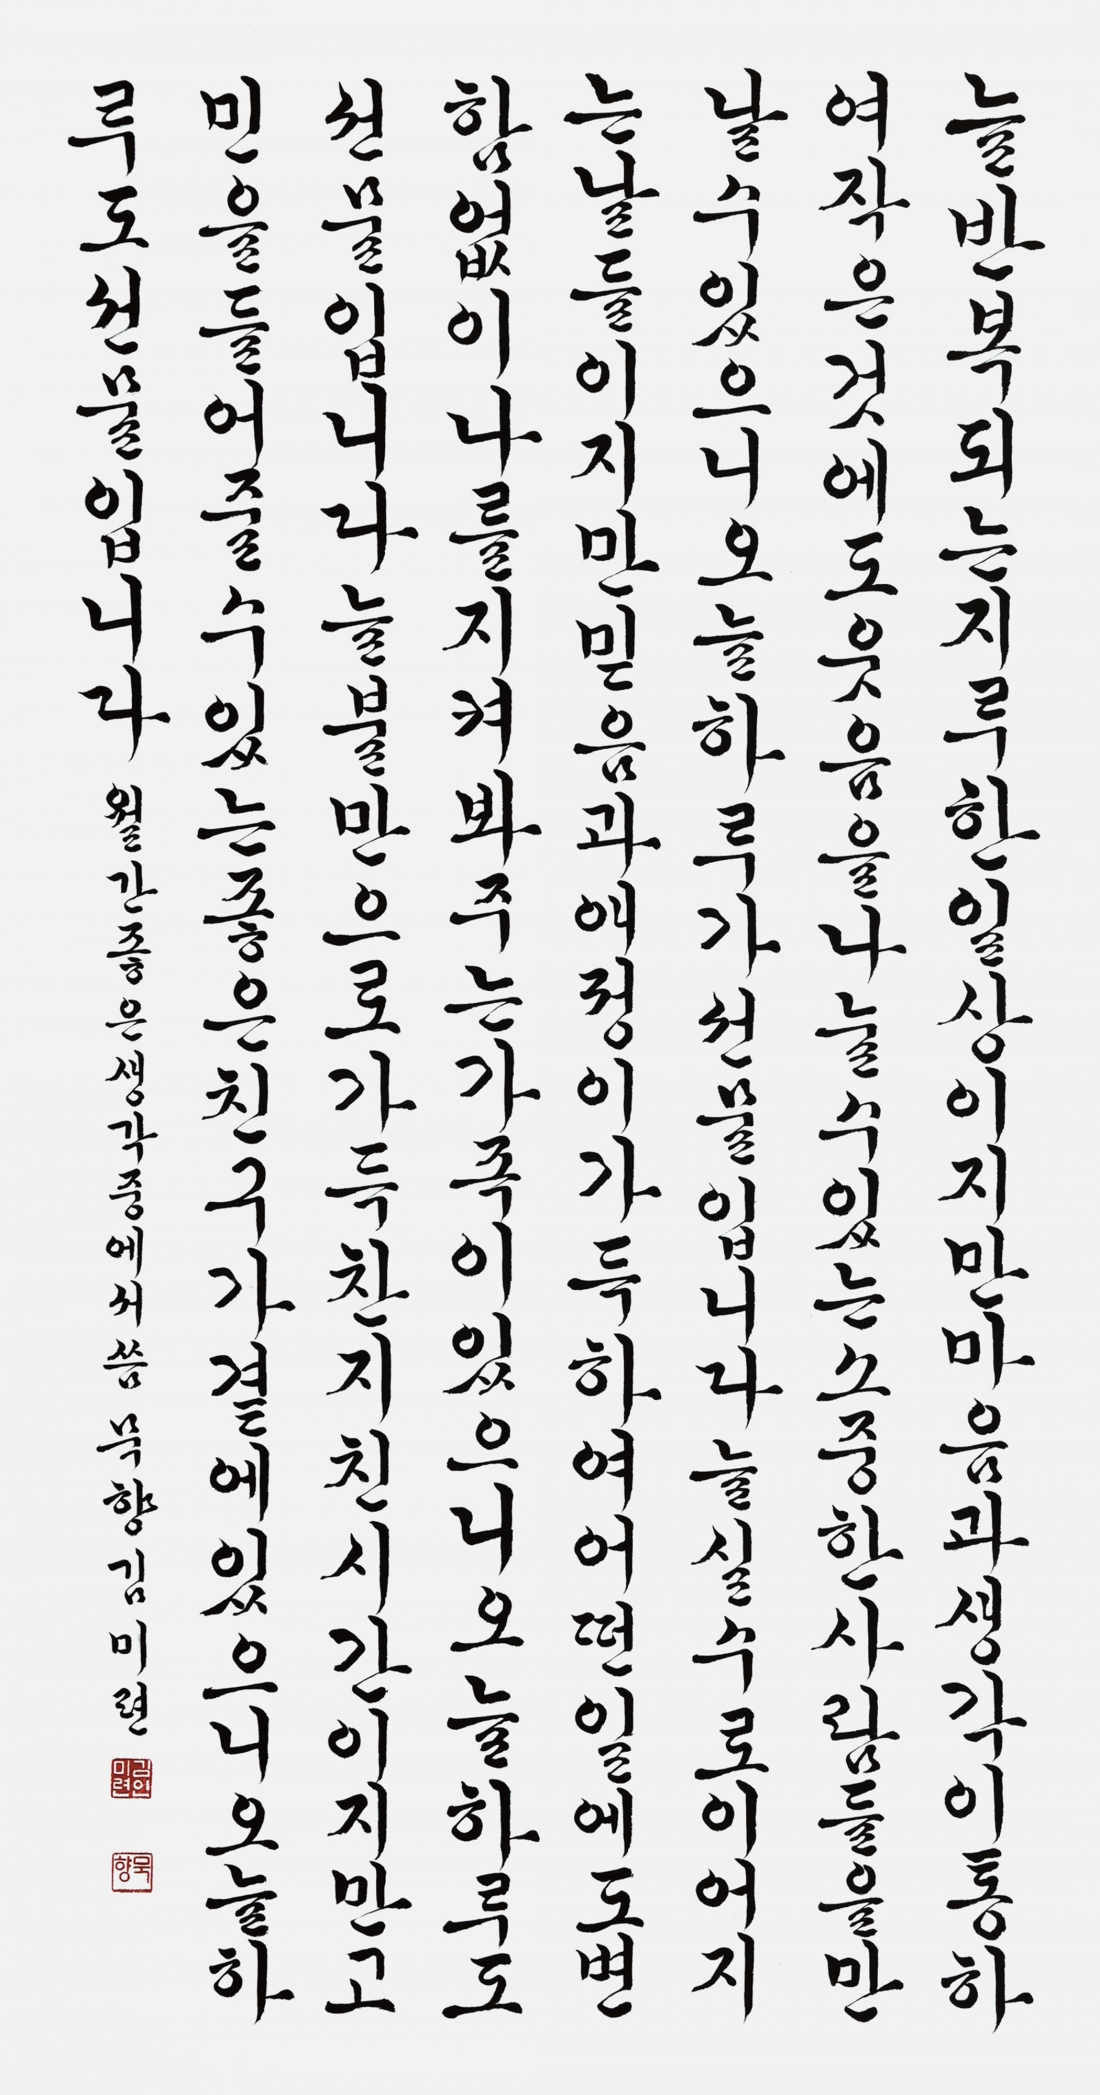 늘반복되는지루한일상이지만마음과생각이통하
여작은것에도웃음을나눌수있는소중한사람들을만
날수있으니오늘하루가선물입니다늘실수로이어지
는날들이지만믿음과애정이가득하여어떤일에도변
함없이나를지켜봐주는가족이있으니오늘하루도
선물입니다늘불만으로가득찬지친시간이지만고
민을들어줄수있는좋은친구가곁에있으니오늘하
루도선물입니다 월간좋은생각중에서씀 묵향김미련
김미련인
묵향